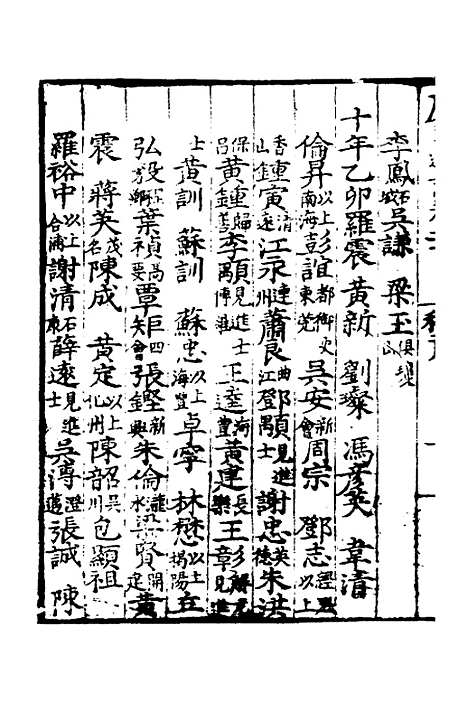 李鳳石城吳謙 梁王俱瓊山
十年乙卯羅震 黃新 劉璨 馮彥英 韋清
倫昇以上南海彭誼都御史東莞吳安新會周宗 鄧志經魁以上
香山鍾寅清遠江永連州蕭良曲江鄧顒見進士謝忠英德朱洪
保昌黃鍾歸善李顒見進士博羅王達海豐黃連長樂王章解元見進
士黃訓 蘇訓 蘇忠以上海豐卓寧 林懋以上揭陽丘
弘 葉禎高要覃矩四會張鏗新興朱倫瀧水梁賢開建黃
震 蔣英茂名陳成 黃定以上化州陳韶吳川包顯祖
羅裕中以上合浦謝清石康薛遠見進士吳溥澄邁張誠 陳